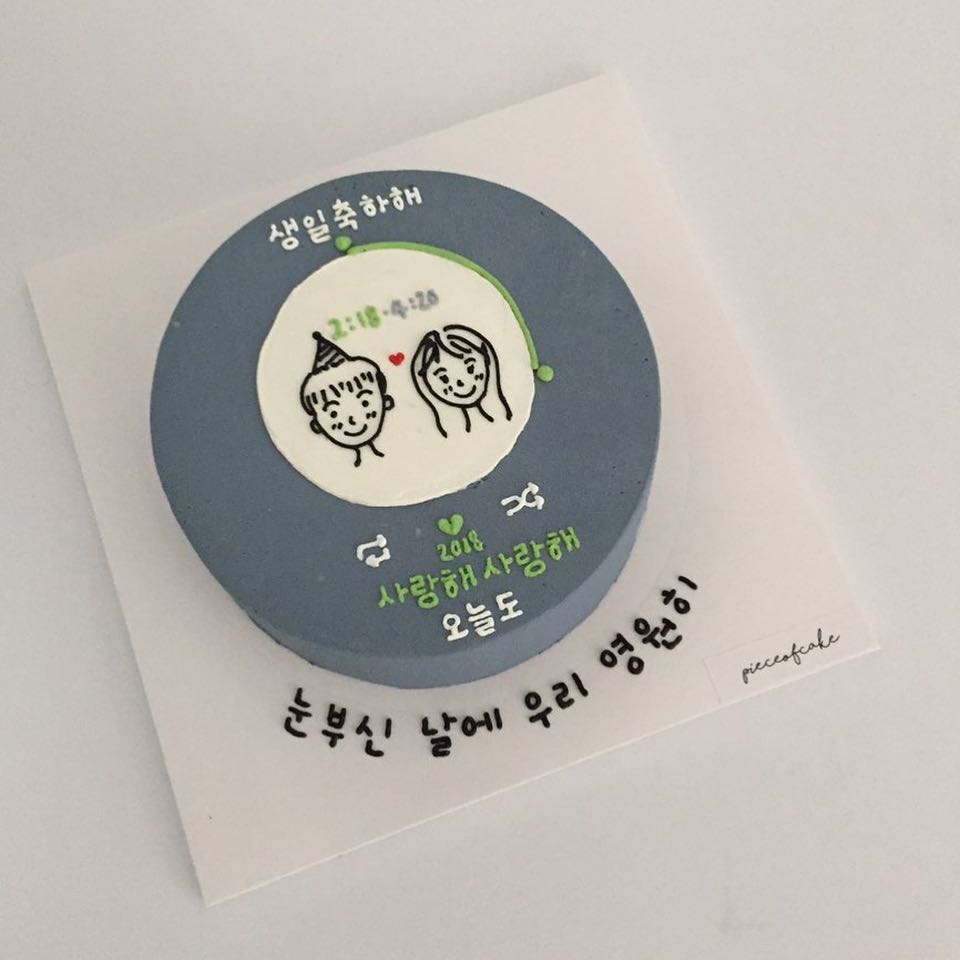 생일축하해
2:18·4:26
2018
사랑해 사랑해
오늘도
눈부신 날에 우리 영원히
pieceofcake